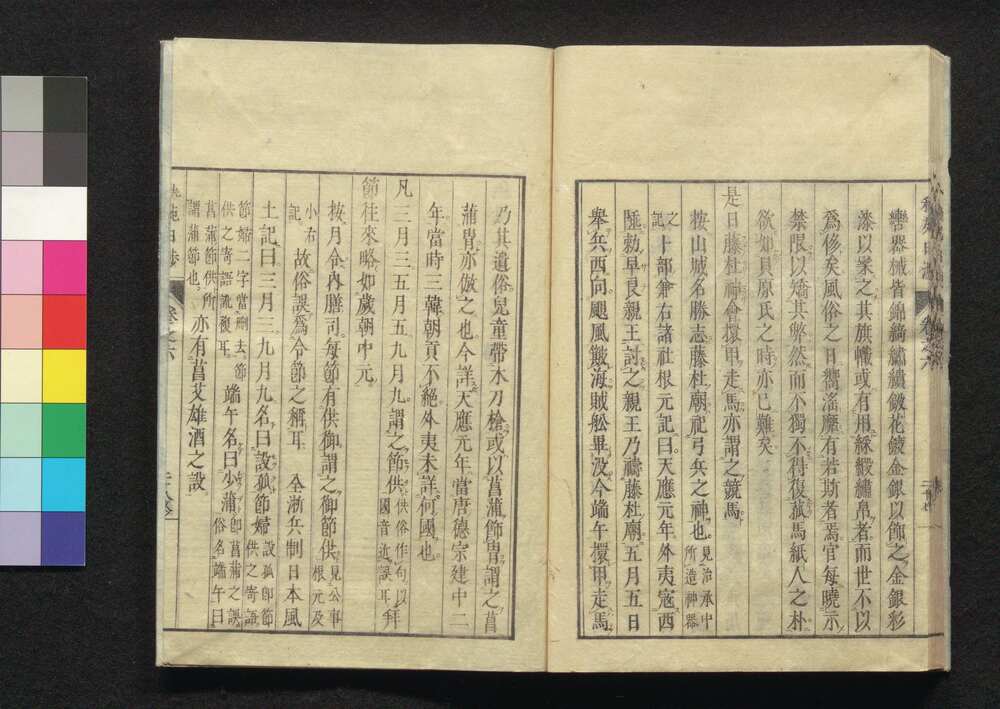 轡器械皆錦綺繡繢鏤花鏤金銀以飾之金銀彩
漆以柒之其旗幟或有用綵緞繡帛者而世不以
爲侈矣風俗之日嚮滛靡有若斯者焉官每曉示
禁限以矯其弊然而不獨不得復菰馬紙人之朴
欲如貝原氏之時亦已難矣
是日藤杜神會擐甲走馬亦謂之競馬
按山城名勝志藤杜廟祀弓兵之神也見治承中所造神器
之記十部兼右諸社根元記曰天應元年外夷寇西
陲勅早良親王討之親王乃禱藤杜廟五月五日
舉兵西向颶風簸海賊舩畢没今端午擐甲走馬
乃其遺俗兒童帶木刀槍或以菖蒲飾冑謂之菖
蒲冑亦倣之也今詳天應元年當唐德宗建中二
年當時三韓朝貢不絕外夷未詳何國也
凡三月三五月五九月九謂之節供供俗作句以拜國音近誤耳
節往來略如歲朝中元
按月令内膳司每節有供御謂之御節供見公事根元及
小右記故俗誤爲令節之稱耳 全浙兵制日本風
土記曰三月三九月九名曰設孤節婦設孤卽節供之寄語
節婦二字當刪去節供之寄語訛復耳端午名曰少蒲卽菖蒲之誤俗名端午曰
菖蒲節供所謂蒲節也亦有菖艾雄酒之設